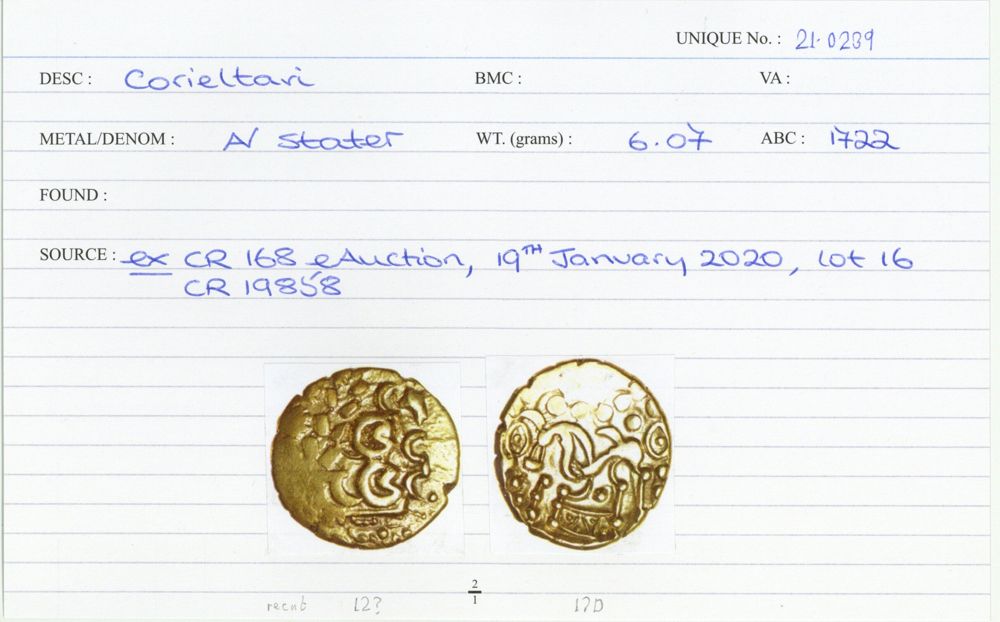 UNIQUE No. : 21.0239
DESC : Corieltavi BMC : VA :
METAL/DENOM : A/ Stater WT. (grams) : 6.07 ABC : 1722
FOUND :
SOURCE : ex CR 168 eAuction, 19TH January 2020, lot 16
CR 19858
2
1